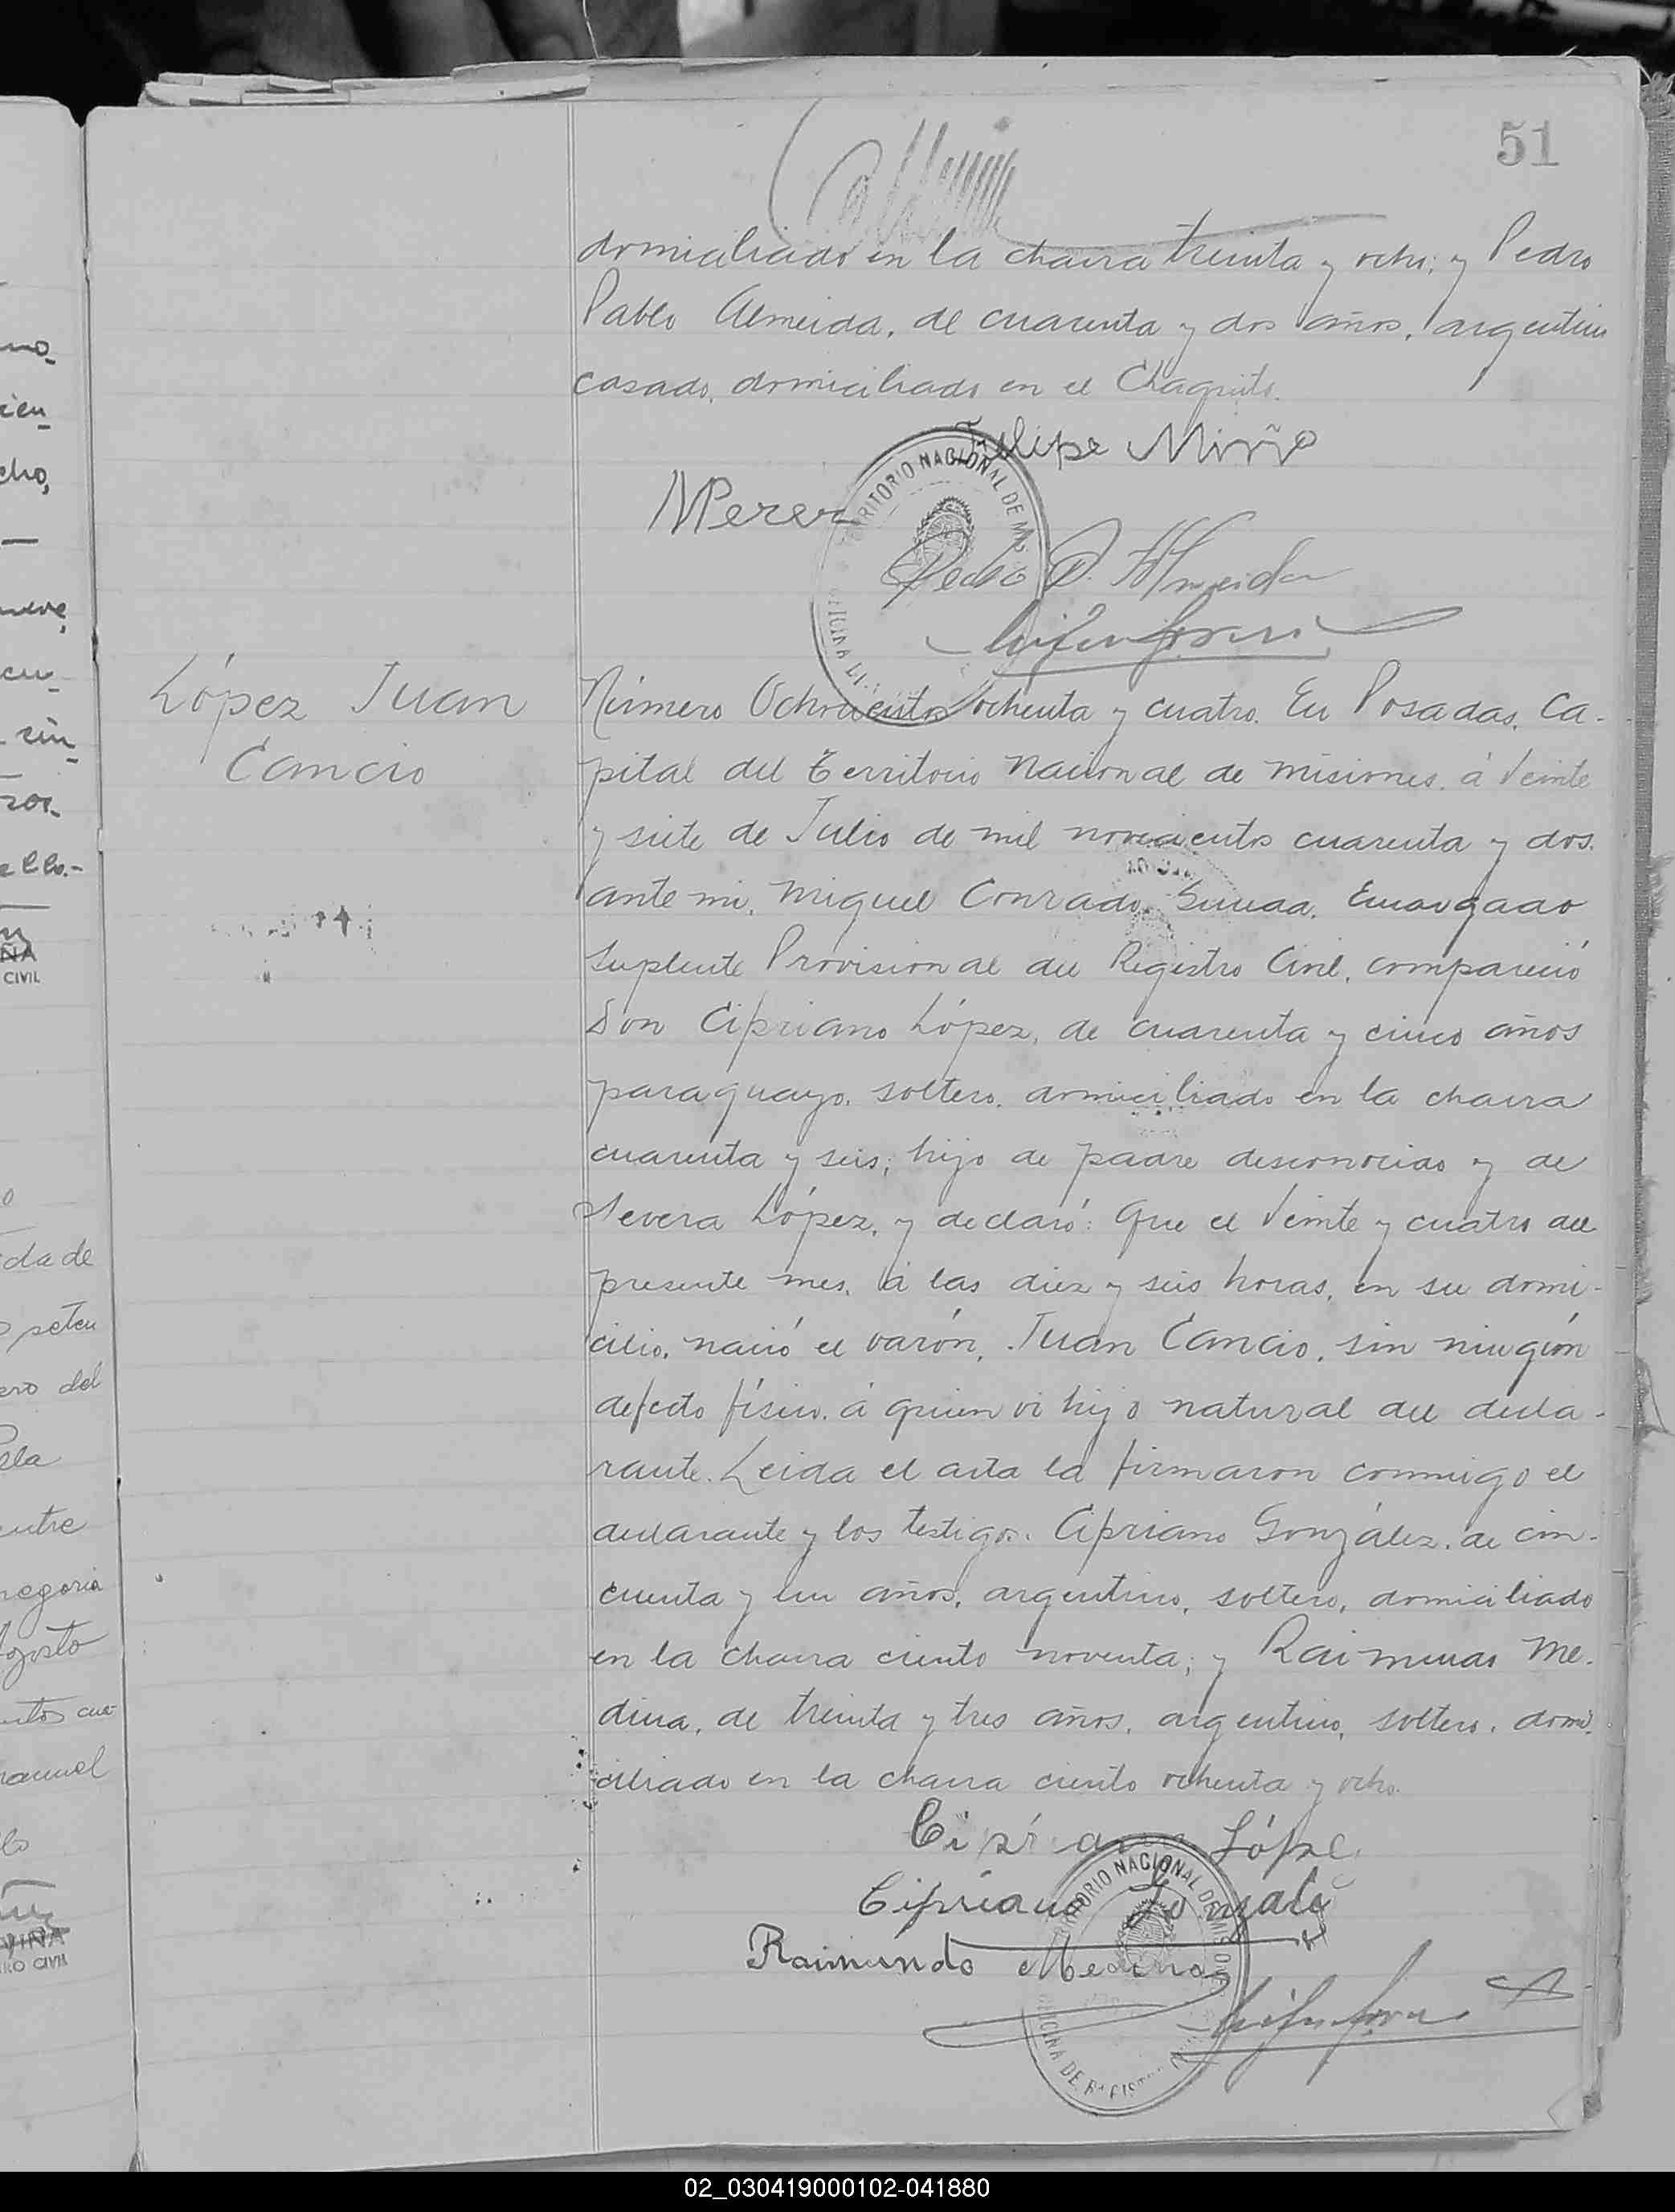 51
domiciliado en la chacra treinta y ocho; y Pedro
Pablo Almeida, de cuarenta y dos años, argentino
casado, domiciliado en el Chaquito.
Felipe Miño
MPerez
TERRITORIO NACIONAL DE MIS
Pedro P. Almeida
López Juan
Cancio
Número Ochocientos ochenta y cuatro. En Posadas, Ca-
pital del Territorio Nacional de Misiones, á Veinte
y siete de Julio de mil novecientos cuarenta y dos.
ante mi, Miguel Conrado Encargado
Suplente Provisional del Registro Civil, compareció
Don Cipriano López, de cuarenta y cinco años
paraguayo, soltero, domiciliado en la chacra
cuarenta y seis; hijo de padre desconocido y de
Severa López, y declaró: Que el Veinte y cuatro del
presente mes, á las diez y seis horas, en su domi-
cilio, nació el varón, Juan Cancio, sin ningún
defecto físico, á quien vi hijo natural del decla-
rante. Leida el acta la firmaron conmigo el
declarante y los testigos. Cipriano González, de cin-
cuenta y un años, argentino, soltero, domiciliado
en la chacra ciento noventa; y Raimundo Me-
dina, de treinta y tres años, argentino, soltero, domi-
ciliado en la chacra ciento ochenta y ocho.
López
Cipriano Gonzalez
TERRITORIO NACIONAL DE MISIONES
Raimundo Medina
OFICINA DE REGISTRO
02_030419000102-041880